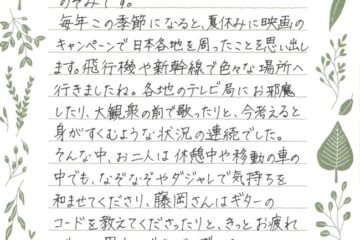 のぞみです。
毎年この季節になると、夏休みに映画の
キャンペーンで日本各地を周ったことを思い出し
ます。飛行機や新幹線で色々な場所へ
行きましたね。各地のテレビ局にお邪魔
したり、大観衆の前で歌ったりと、今考えると
身がすくむような状況の連続でした。
そんな中、お二人は休憩中や移動の車の
中でも、なぞなぞやダジャレで気持ちを
和ませてくださり、藤岡さんはギターの
コードを教えてくださったりと、きっとお疲れ